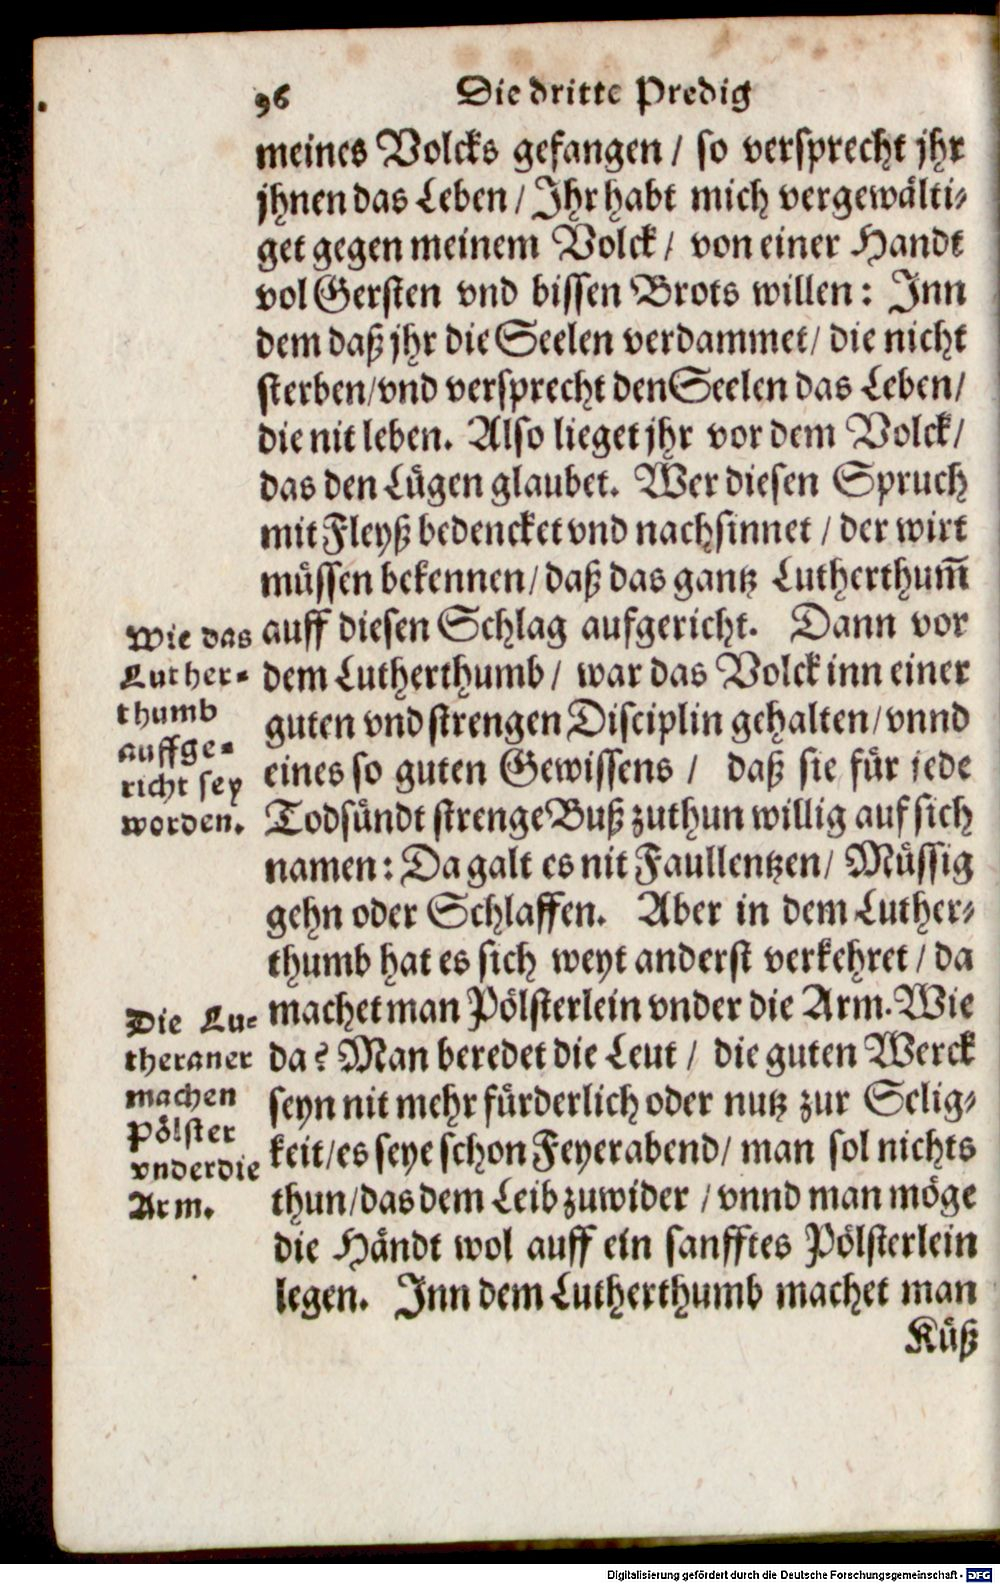 96 Die dritte Predig
meines Volcks gefangen / so versprecht jhr
jhnen das Leben / Jhr habt mich vergewålti-
get gegen meinem Volck / von einer Handt
vol Gersten vnd bissen Brots willen: Jnn
dem daß jhr die Seelen verdammet / die nicht
sterben / vnd versprecht den Seelen das Leben /
die nit leben. Also lieget jhr vor dem Volck /
das den Lügen glaubet. Wer diesen Spruch
mit Fleyß bedencket vnd nachsinnet / der wirt
müssen bekennen / daß das gantz Lutherthum̃
auff diesen Schlag aufgericht. Dann vor
dem Lutherthumb / war das Volck inn einer
guten vnd strengen Disciplin gehalten / vnnd
eines so guten Gewissens / daß sie für jede
Todsündt strenge Buß zuthun willig auf sich
namen: Da galt es nit Faullentzen / Müssig
gehn oder Schlaffen. Aber in dem Luther-
thumb hat es sich weyt anderst verkehret / da
machet man Pölsterlein vnder die Arm. Wie
da? Man beredet die Leut / die guten Werck
seyn nit mehr fürderlich oder nutz zur Selig-
keit / es seye schon Feyerabend / man sol nichts
thun / das dem Leib zuwider / vnnd man möge
die Händt wol auff ein sanfftes Pölsterlein
legen. Jnn dem Lutherthumb machet man
Küß
Wie das
Luther-
thumb
auffge-
richt sey
worden.
Die Lu-
theraner
machen
Pölster
vnder die
Arm.
Digitalisierung gefördert durch die Deutsche Forschungsgemeinschaft - DFG